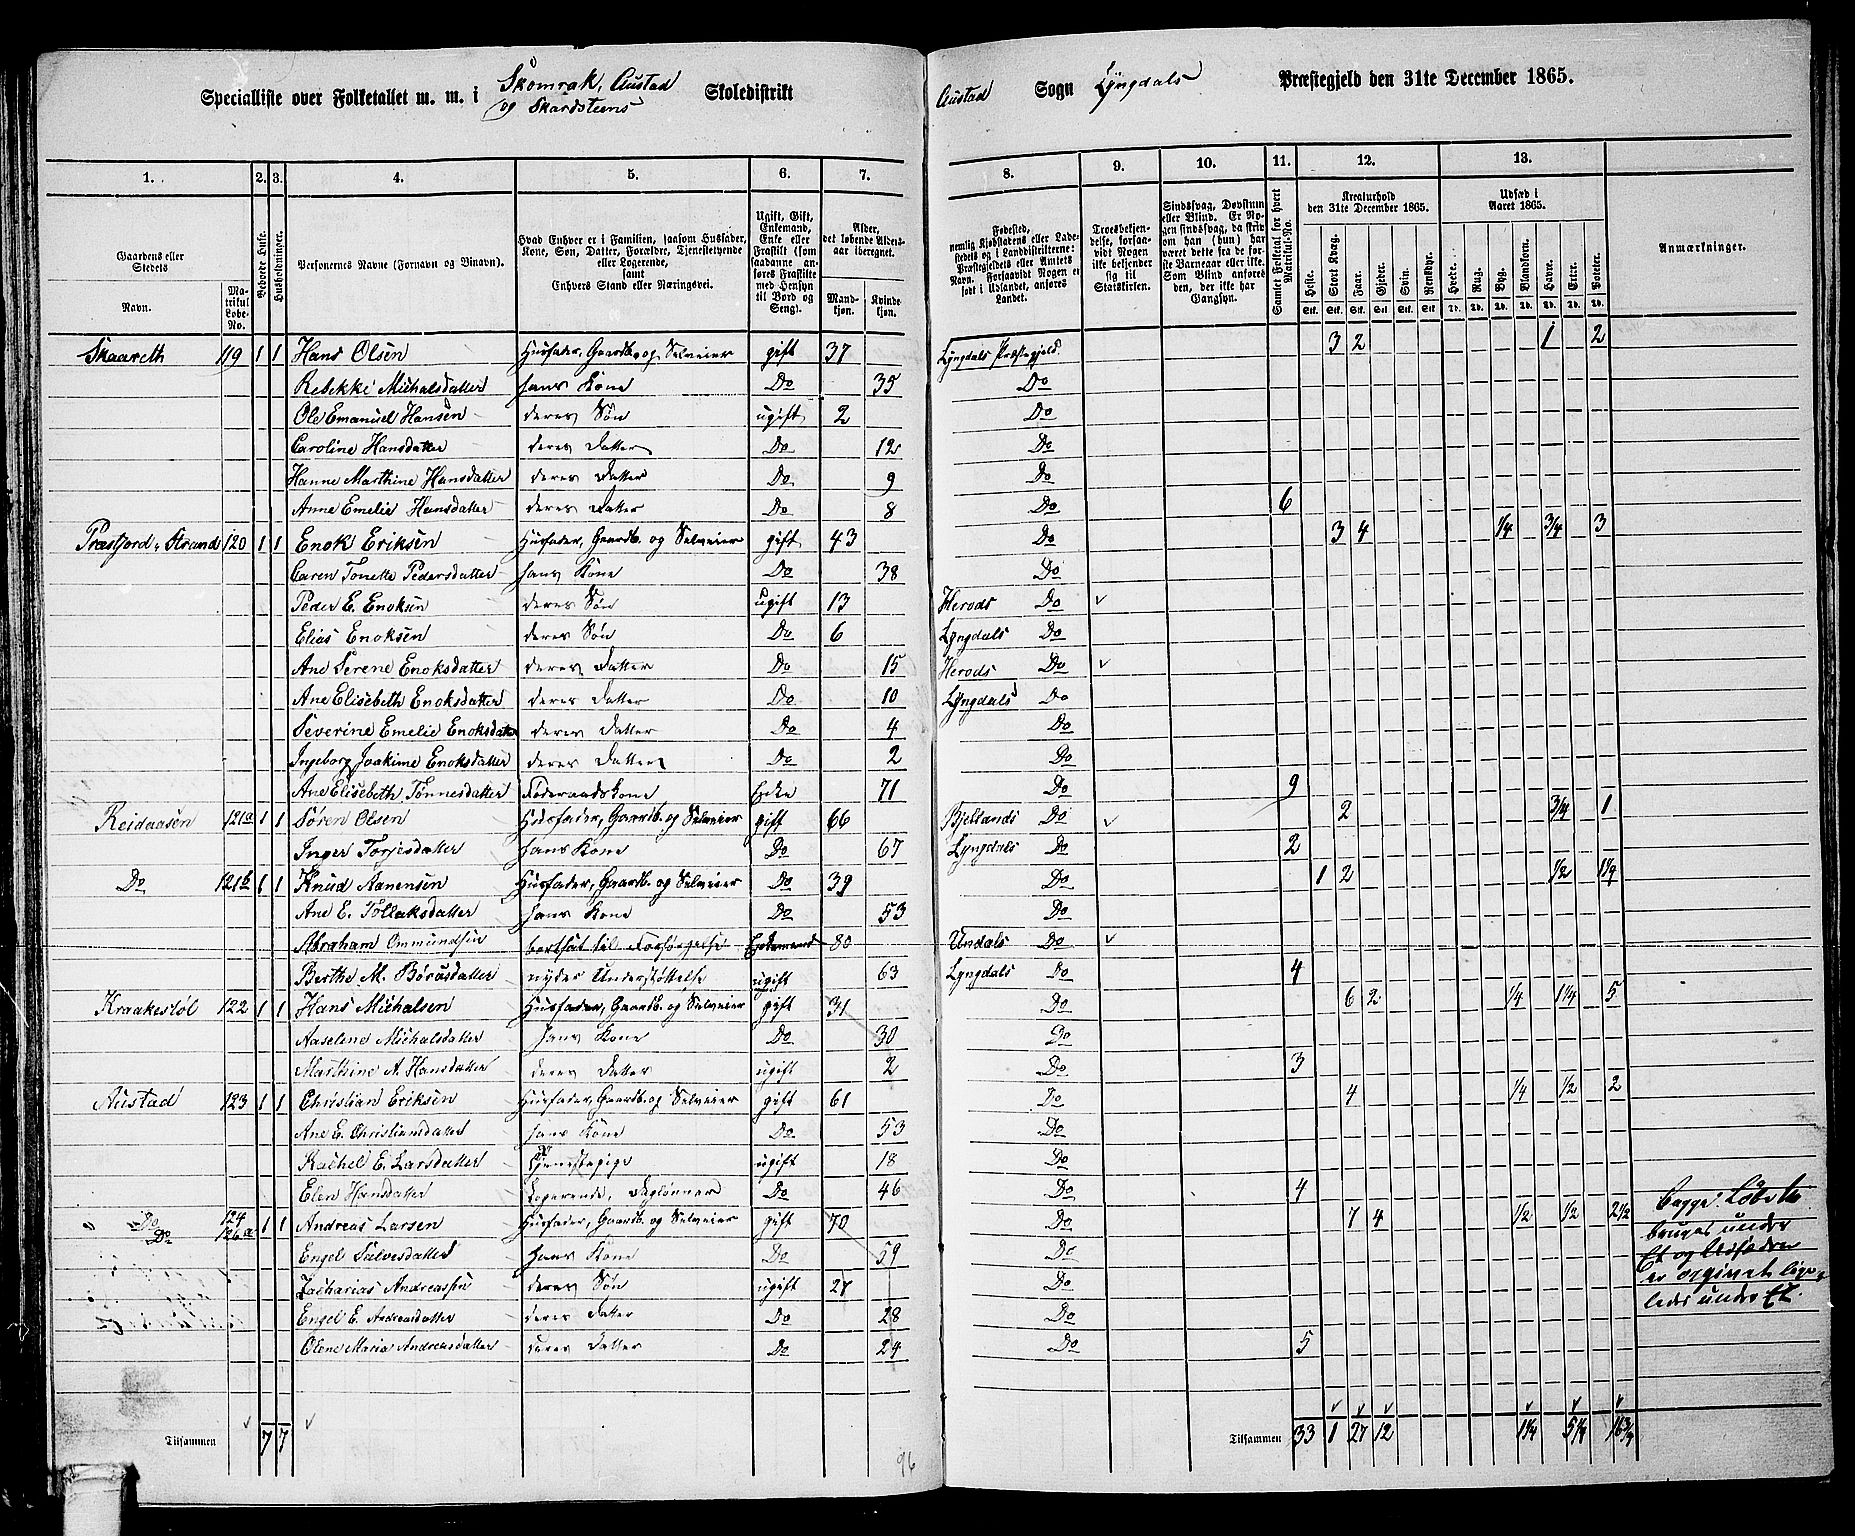 Specialliste over Folketallet m. m. i Skomrak, Austad og Skardsteens Skoledistrikt
Austad Sogn Lyngdals Præstegjeld den 31te December 1865.
1. 2. 3. 4. 5. 6. 7. 8. 9. 10. 11. 12. 13.
Gaardens eller Stedets
Navn. Matrikul Løbe-No.
Beboede Huse.
Husholdninger.
Personernes Navne (Fornavn og Binavn).
Hvad Enhver er i Familien, saasom Husfader, Kone, Søn, Datter, Forældre, Tjenestetyende eller Logerende, samt Enhvers Stand eller Næringsvei.
Ugift, Gift, Enkemand, Enke eller Fraskilt (saadanne anføres Fraskilte med Hensyn til Bord og Seng).
Alder, det løbende Aldersaar iberegnet.
Mandkjøn. Kvindekjøn.
Fødested, nemlig Kjøbstadens eller Ladestedets og i Landdistrikterne: Præstegjeldets eller Amtets Navn. Forsaavidt Nogen er født i Udlandet, anføres Landet.
Troesbekjendelse, forsaavidt Nogen ikke bekjender sig til Statskirken.
Sindssvag, Døvstum eller Blind. Er Nogen sindssvag, da skrives om han (hun) har været dette fra de første Barneaar eller ikke. Som Blind anføres den, der ikke har Gangsyn.
Samlet Folketal for hvert Matrikul-No.
Kreaturhold den 31te December 1865.
Heste. Stort Kvæg. Faar. Gjeder. Svin. Rensdyr.
Udsæd i Aaret 1865.
Hvede. Rug. Byg. Blandkorn. Havre. Erter. Poteter.
Anmærkninger.
Skaareth 119 1 1 Hans Olsen Husfader, Gaardb. og Selveier gift 37 Lyngdals Præstegjeld. 3 2 1 2
Rebekke Michalsdatter hans Kone Do 35 Do
Ole Emanuel Hansen deres Søn ugift 2 Do
Caroline Hansdatter deres Datter Do 12 Do
Hanne Marthine Hansdatter deres Datter Do 9 Do
Anne Emelie Hansdatter deres Datter Do 8 Do 6
Præstfjord, Strand 120 1 1 Enok Eriksen Husfader, Gaardb. og Selveier gift 43 Do 3 4 1/4 3/4 3
Caren Tonette Pedersdatter hans Kone Do 38 Do
Peder E. Enoksen deres Søn ugift 13 Herods Do
Elias Enoksen deres Søn Do 6 Lyngdals Do
Ane Serene Enoksdatter deres Datter Do 15 Herods Do
Ane Elisebeth Enoksdatter deres Datter Do 10 Lyngdals Do
Severine Emelie Enoksdatter deres Datter Do 4 Do
Ingeborg Joakime Enoksdatter deres Datter Do 2 Do
Ane Elisebeth Tønnesdatter Føderaadskone Enke 71 Do 9
Reidaasen 121a 1 1 Søren Olsen Husfader, Gaardb. og Selveier gift 66 Bjellands Do 2 3/4 1
Inger Torjesdatter hans Kone Do 67 Lyngdals Do 2
Do 121b 1 1 Knud Aanensen Husfader, Gaardb. og Selveier Do 39 Do 1 2 1/2 1 1/4
Ane E. Tollaksdatter hans Kone Do 53 Do
Abraham Ommundsen bortsat til Forsørgelse Enkemand 80 Undals Do
Berthe M. Børusdatter nyder Understøttelse ugift 63 Lyngdals Do 4
Kraakestøl 122 1 1 Hans Michalsen Husfader, Gaardb. og Selveier gift 31 Do 6 2 1/4 1 1/4 5
Aaselene Michalsdatter hans Kone Do 30 Do
Marthine A. Hansdatter deres Datter ugift 2 Do 3
Austad 123 1 1 Christian Eriksen Husfader, Gaardb. og Selveier gift 61 Do 4 1/4 1/2 2
Ane E. Christiansdatter hans Kone Do 53 Do
Rachel E. Larsdatter Tjenestepige ugift 18 Do
Elen Hansdatter Logerende, Daglønner Do 46 Do 4
Do Do 124 126a 1 1 Andreas Larsen Husfader, Gaardb. og Selveier gift 70 Do 7 4 1/2 1/2 2 1/2
Engel Salvesdatter hans Kone Do 59 Do
Zacharias Andreassen deres Søn ugift 27 Do
Engel E. Andreasdatter deres Datter Do 28 Do
Olene Maria Andreasdatter deres Datter Do 24 Do 5
Begge Løbe No
bruges under
Et og Udsæden
er opgivet lige-
ledes under Et.
Tilsammen 7 7
Tilsammen 33 1 27 12 1 1/4 5 1/4 16 3/4
96